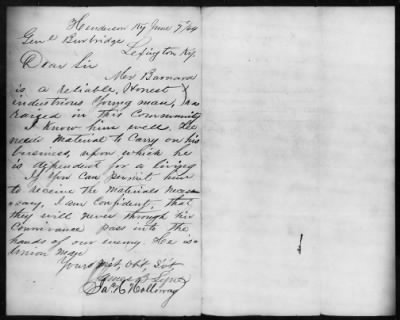 Henderson Ky June 7/64
Genl Burbridge
Lexington Ky.
Dear Sir
Mr Barnard
is a reliable, Honest
industrious Young man, was
raised in this Community
I Know him well. He
needs Material to Carry on his
business, upon which he
is dependent for a living
If You Can permit him
to receive the Materials neces-
sary, I am Confident, that
they will never through his
Connivance pass into the
hands of our enemy. He is a
Union man
Yours Obt, Svt
George
Ja. H Holloway